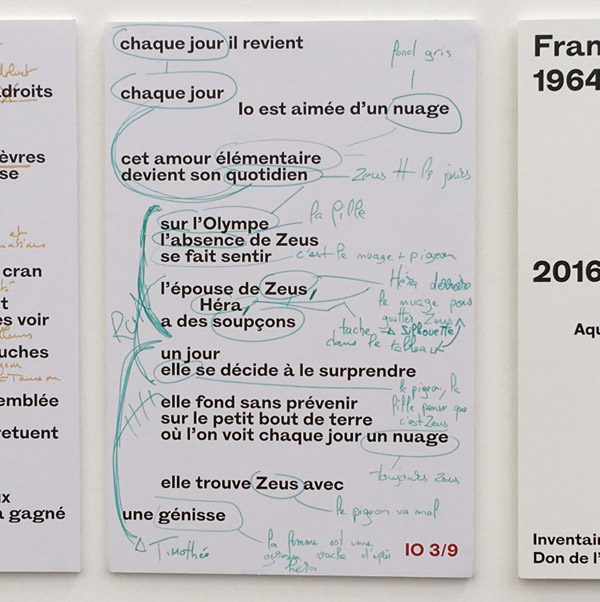 droits
èvres
se
cran
t
es voir
ouches
emblée
retuent
ux
a gagné
chaque jour il revient
fond gris
chaque jour
Io est aimée d’un nuage
cet amour élémentaire
devient son quotidien
Zeus
sur l’Olympe
la fille
l’absence de Zeus
se fait sentir
c'est le nuage + pigeon
l’épouse de Zeus,
Héra,
a des soupçons
Héra derrière
le nuage pour
Zeus
tache
silhouette
dans le tableau
un jour
elle se décide à le surprendre
le pigeon, la
fille pense que
c'est Zeus
elle fond sans prévenir
sur le petit bout de terre
où l’on voit chaque jour un nuage
toujours Zeus
elle trouve Zeus avec
le pigeon va mal
une génisse
Timothée
la femme est une
vache d'après
héra
IO 3/9
Fran
1964
2016
Aqu
Inventair
Don de l’